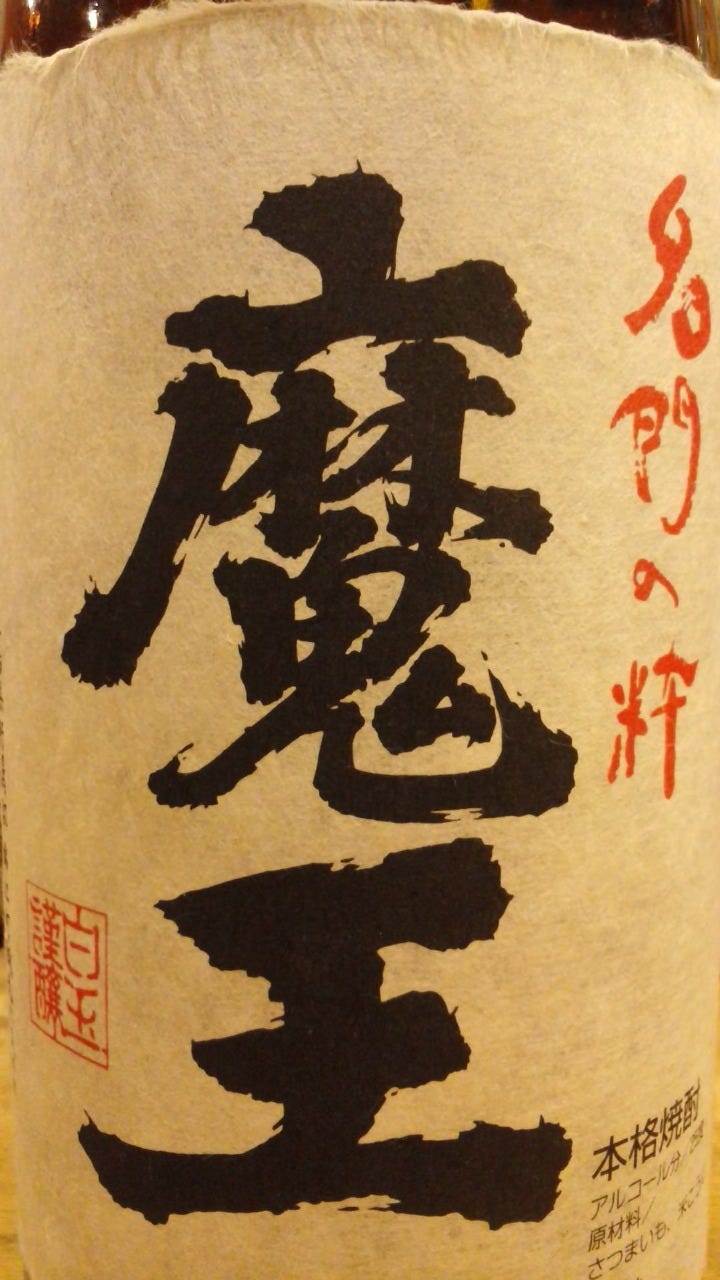 名門の粋
魔王
白玉
謹醸
本格焼酎
アルコール分/25度
原材料/
さつまいも、米こうじ